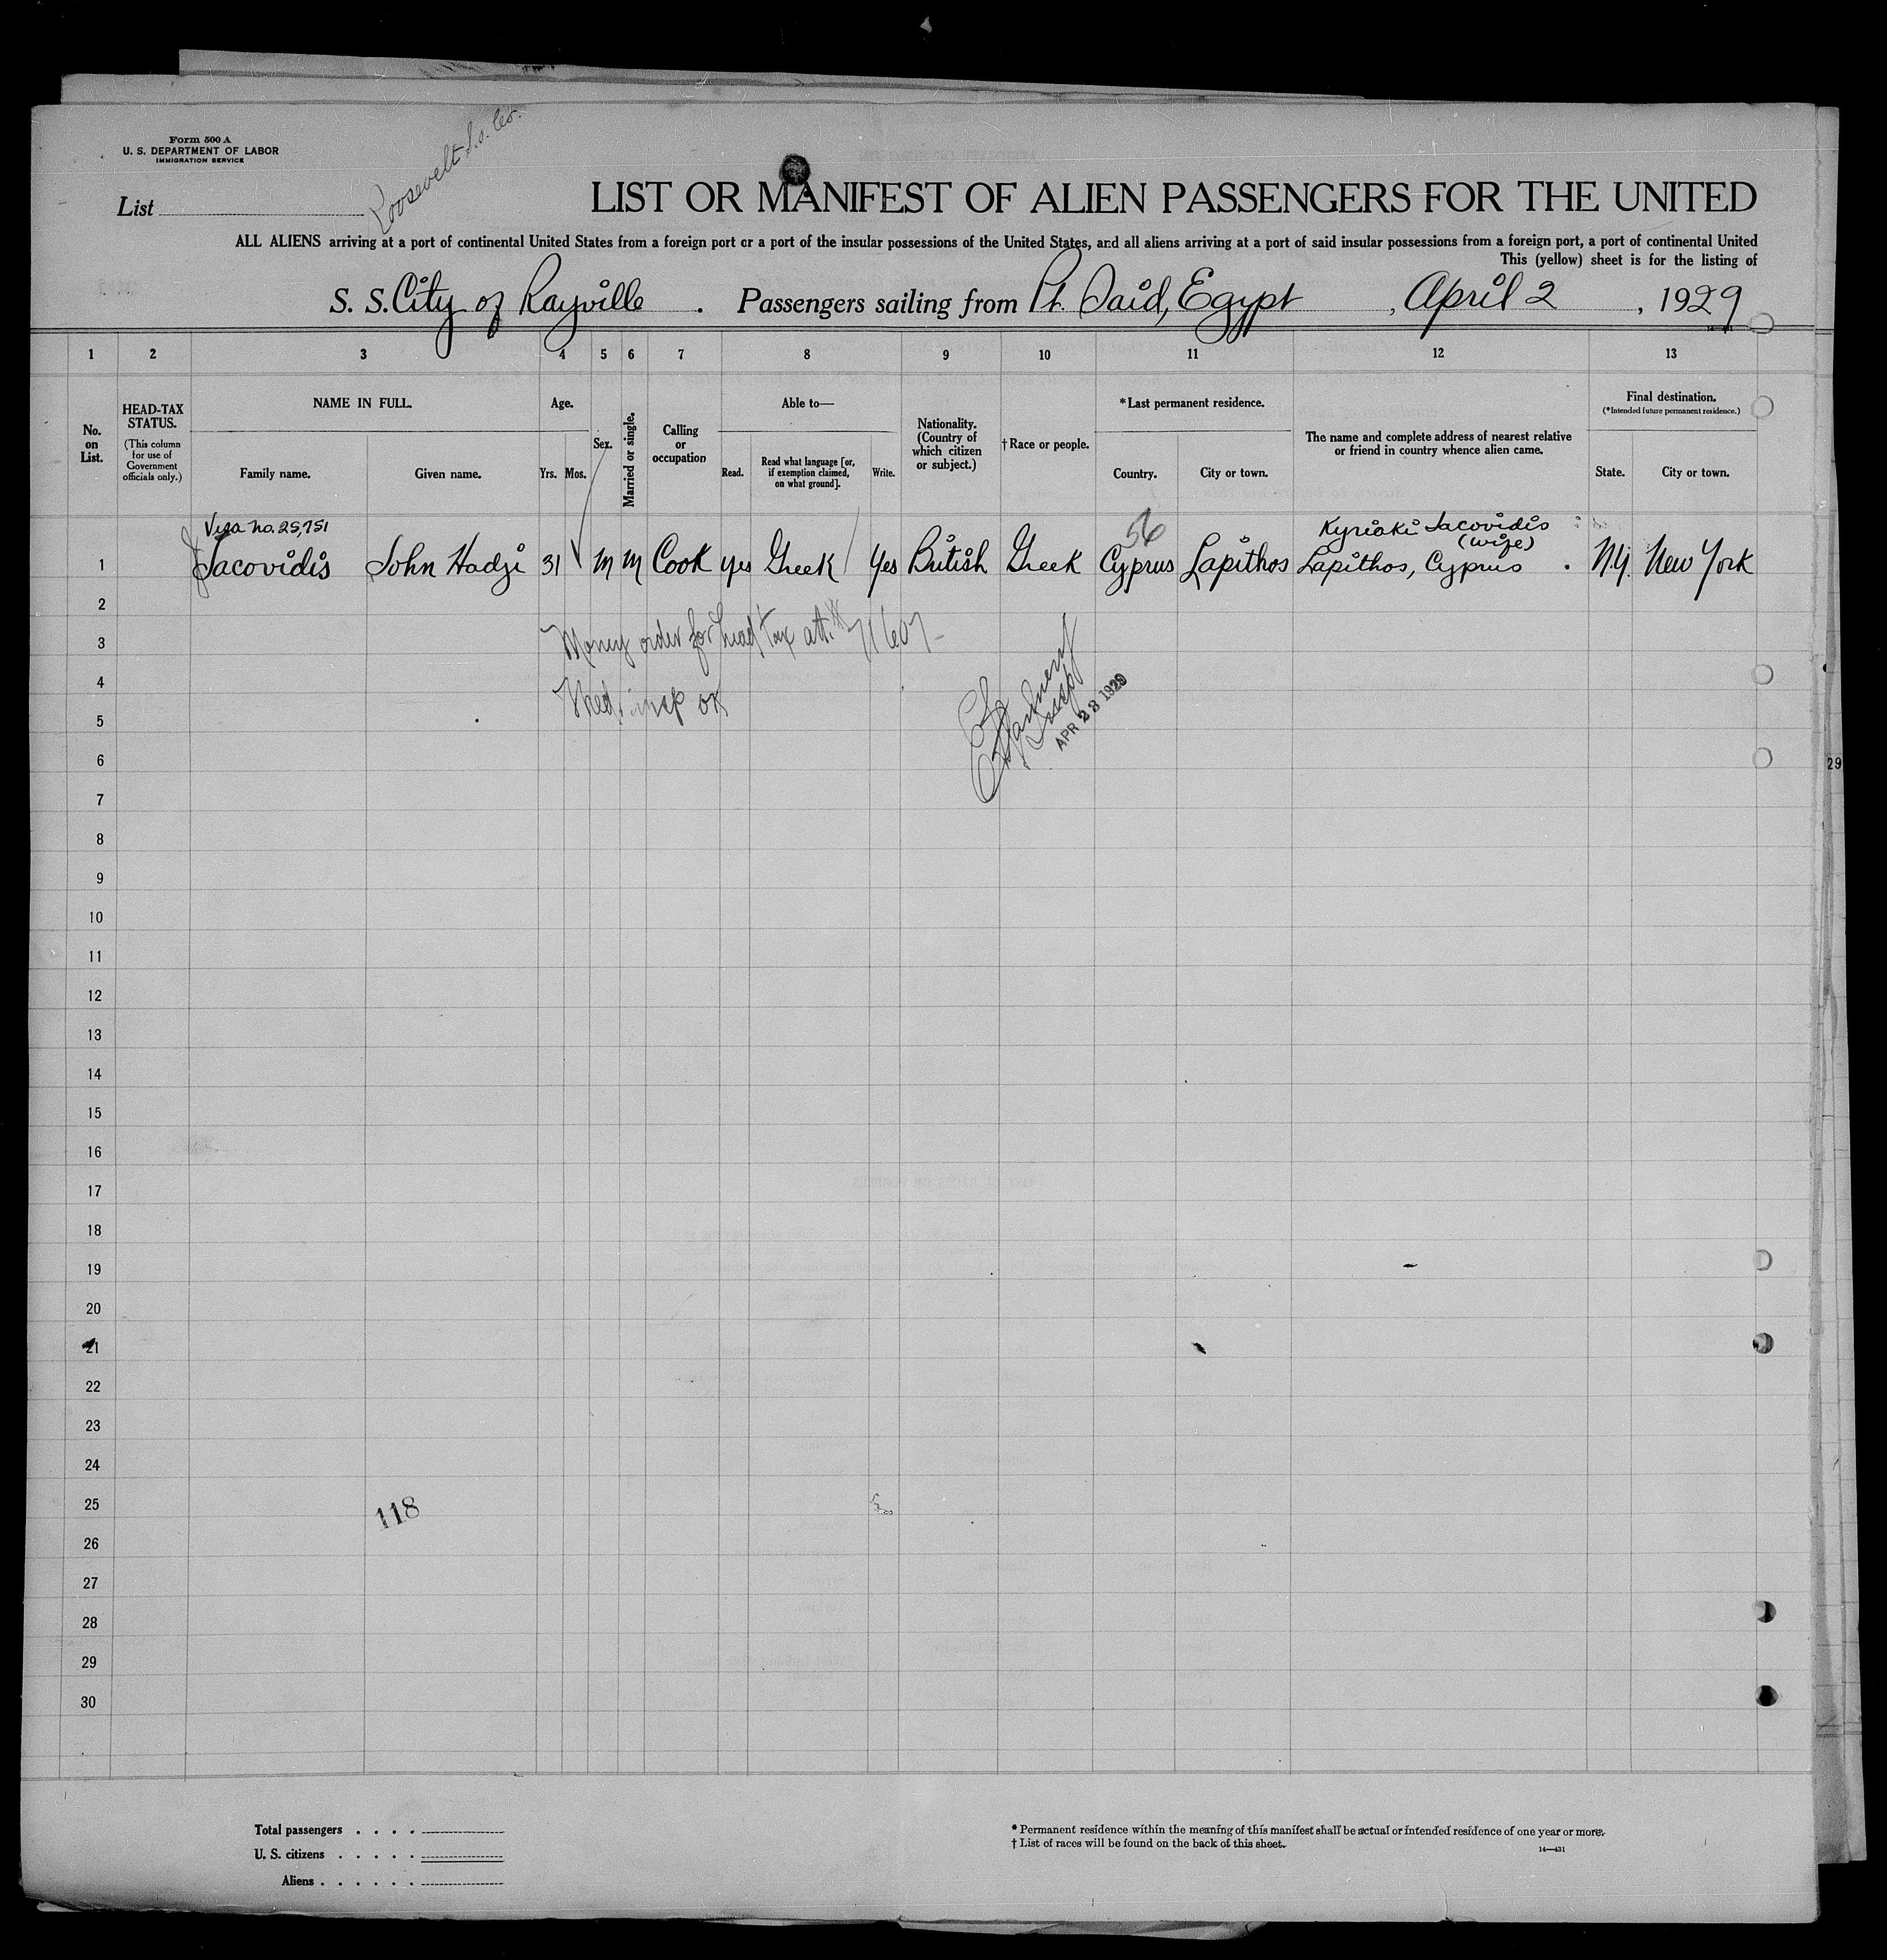 Form 500 A
U. S. DEPARTMENT OF LABOR
IMMIGRATION SERVICE
Roosevelt S.S. Co.
List
LIST OR MANIFEST OF ALIEN PASSENGERS FOR THE UNITED
ALL ALIENS arriving at a port of continental United States from a foreign port or a port of the insular possessions of the United States, and all aliens arriving at a port of said insular possessions from a foreign port, a port of continental United
This (yellow) sheet is for the listing of
S. S. City of Rayville . Passengers sailing from Pt. Said, Egypt , April 2 , 1929
1 2 3 4 5 6 7 8 9 10 11 12 13
No. on List.
HEAD-TAX STATUS.
(This column for use of Government officials only.)
NAME IN FULL.
Family name. Given name.
Age.
Yrs. Mos.
Sex.
Married or single.
Calling or occupation
Able to—
Read. Read what language [or, if exemption claimed, on what ground]. Write.
Nationality. (Country of which citizen or subject.)
†Race or people.
*Last permanent residence.
Country. City or town.
The name and complete address of nearest relative or friend in country whence alien came.
Final destination.
(*Intended future permanent residence.)
State. City or town.
Visa No. 25,751
56
Kyriaki Jacovidis
(wife)
1 Jacovidis John Hadji 31 M M Cook yes Greek Yes British Greek Cyprus Lapithos Lapithos, Cyprus . N.Y. New York
2
Money order for head tax att. 71607-
3
4
Med. insp ok
5
Insp
APR 28 1929
6
29
7
8
9
10
11
12
13
14
15
16
17
18
19
20
21
22
23
24
25
118
26
27
28
29
30
Total passengers . . . .
U. S. citizens . . . . .
Aliens . . . . . .
* Permanent residence within the meaning of this manifest shall be actual or intended residence of one year or more.
† List of races will be found on the back of this sheet.
14—431